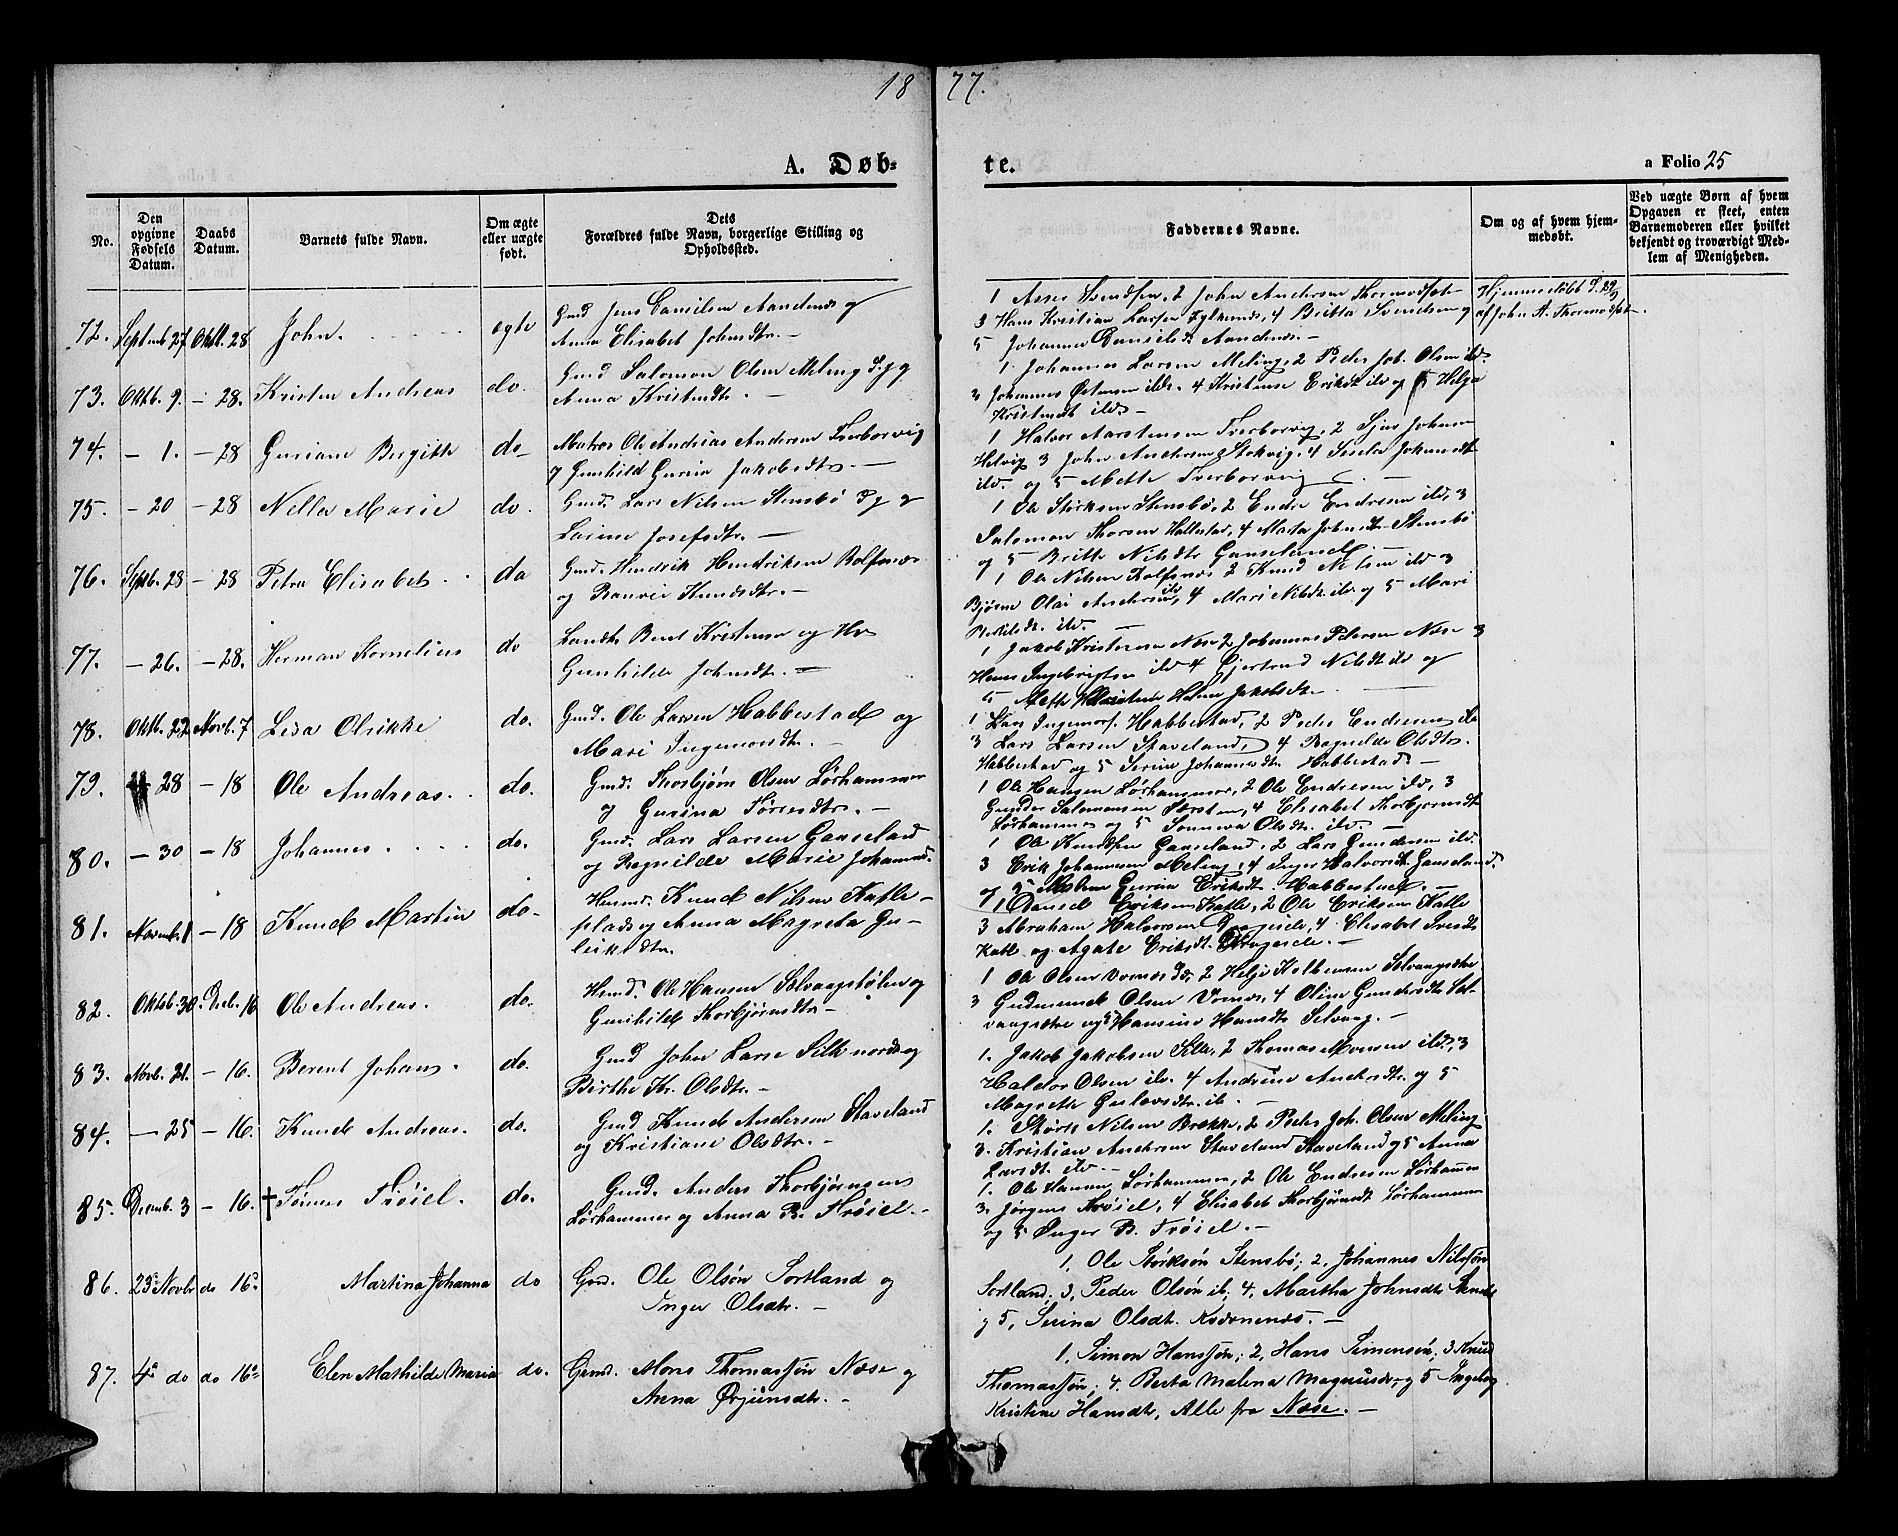 18 77.
A. Døb-
te.
a Folio 25
No.
Den opgivne Fødsels Datum.
Daabs Datum.
Barnets fulde Navn.
Om ægte eller uægte født.
Dets Forældres fulde Navn, borgerlige Stilling og Opholdssted.
Faddernes Navne.
Om og af hvem hjemmedøbt.
Ved uægte Børn af hvem Opgaven er skeet, enten Barnemoderen eller hvilket bekjendt og troværdigt Medlem af Menigheden.
72. Septemb 27 Oktb. 28 John. ægte Gmd Jens Danielsen Aandenes og
Anna Elisabet Johnsdtr. —
1 Asser Svendsen, 2 John Andersen
3 Hans Kristian Larsen 4 Britta Svendsen og
5 Johanna Danielsdtr Aandenes. —
Hjemmedøbt
af John A.
73. Oktb. 9. — 28. Kristen Andreas do. Gmd Salomon Olsen Meling
Anna Kristensdtr. —
1 Johannes Larsen Meling, 2 Peder Joh. Olsen ibd.
3 Johannes Østensen ibd. 4 Kristense Eriksdt ibd og 5 Helga
Kristensdt ibd —
74. — 1. — 28 Guriane Birgitte do Matros Ole Andreas Andersen Tverborvig
og Gunhild Guria Jakobsdtr. —
1 Halvor Aarstensen Tverborvig, 2 Sjur Johnsen
Helvig 3 John Andersen Stokvig, 4 Siselia Johnsdt
ibd. og 5 Mette Tverborvig —
75. — 20 — 28 Nella Marie do. Gmd. Lars Nilsen Stensbø
Larine Josefsdtr. —
1 Ole Størksen Stensbø, 2 Endre Endresen ibd, 3
Salomon Thorsen Hallestad, 4 Marta Johnsdtr Stensbø
og 5 Britte Nilsdtr Gaaseland —
76. Septb. 28 — 28 Petra Elisabet do Gmd. Hendrik Hendriksen Rolfsnæs
og Ranvei Knudsdtr. —
1 Ole Nilsen Rolfsnæs 2 Knud Nilsen ibd 3
Bjørn Olai Andersen ibd, 4 Mari Nilsdt. ibd og 5 Mari
ibd. —
77. — 26. — 28. Herman Kornelius do Berel Kristensen og
Gunhilde Johnsdt. —
1 Jakob Kristensen Næse 2 Johannes Petersen Næse 3
Hans Ingebrigtsen ibd 4 Gjertrud Nilsdt ibd og
5 Mette Jakobsdt. —
78. Oktb. 22 Novb. 7 Lisa Olrikke do. Gmd. Ole Larsen Habbestad og
Mari Ingemorsdtr. —
1 Lars Ingemors. Habbestad, 2 Peder Endresen ibd
3 Lars Larsen Staveland, 4 Ragnilde Olsdtr.
Habbestad og 5 Serina Johannesdtr Habbestad —
79. 28 — 18 Ole Andreas. do. Gmd. Thorbjørn Olsen Sørhammer
og Gurina Tørresdtr. —
1 Ole Hansen Sørhammer, 2 Ole Endresen ibd, 3
Gunder Salomonsen 4 Elisabet Thorbjørnsdt
Sørhammer og 5 Sonneva Olsdt. ibd. —
80. — 30 — 18 Johannes. do. Gmd. Lars Larsen Gaaseland
og Ragnilde Marie Johannsd.
1 Ole Knudsen Gaaseland, 2 Lars Gundersen ibd.
3 Erik Johannesen Meling, 4 Inger Halvorsdt. Gaaseland.
og 5 Guria Eriksdt. Habbestad. —
81. Novemb. 1 — 18 Knud Martin do. Husmd. Knud Nilsen Katle-
plads og Anna Magreta Gu-
leiksdtr.
1 Daniel Eriksen Katle, 2 Ole Eriksen Katle
3 Abraham Halvorsen 4 Elisabet
Katle og Agate Eriksdt. —
82. Oktob. 30. Decb. 16 Ole Andreas. do. Hsmd. Ole Hansen Selvaagstølen og
Gunhild Thorbjørnsdtr —
1 Ole Olsen 2 Helje Selvaagsætre
3 Gudmund Olsen Vornes, 4 Oline Gundersdt. Sel-
vaagsætre og 5 Hansine Hansdt. Selvaag. —
83. Novb. 21. — 16. Berent Johans. do. Gmd John Larse Silk nordr og
Birthe Kr. Olsdt. —
1. Jakob Jakobsen Silk, 2 Thomas Monsen ibd. 3
Haldor Olsen ibd. 4 Andrine Andersdt. og 5
Magrethe Guslavsdtr. ib. —
84. — 25 — 16. Knud Andreas. do. Gmd Knud Andersen Staveland
og Kristiane Olsdtr. —
1. Størk Nilsen Brekke, 2 Peder Joh. Olsen Meling
3. Kristian Andersen Staveland Staveland og 5 Anna
Larsdt. ibd. —
85. Decemb. 3 — 16. † Tønnes Trøiel. do. Gmd. Anders Thorbjørnsens
Sørhammer og Anna B. Trøiel. —
1. Ole Hansen Sørhammer, 2 Ole Endresen Sørhammer
3. Jørgens Trøiel, 4 Elisabet Thorbjørnsdt. Sørhammer
og 5 Inger B. Trøiel. —
86. 25 Novbr do 16 Martina Johanna do Gmd. Ole Olsøn Sortland og
Inger Olsdtr. —
1. Ole Størksøn Stensbø; 2, Johannes Nilssøn
Sortland; 3, Peder Olsøn ib; 4, Martha Johnsdt.
og 5, Serina Olsdt. Kværnenæs. —
87. 4 do do 16 Elen Mathilde Maria do. Gmd. Mons Thomassøn Næse og
Anna Ørjansdtr. —
1, Simon Hanssøn; 2, Hans Simonsøn; 3 Knud
Thomassøn; 4. Berta Malena Magnusdtr og 5 Ingeborg
Kristine Hansdt, Alle fra Næse. —